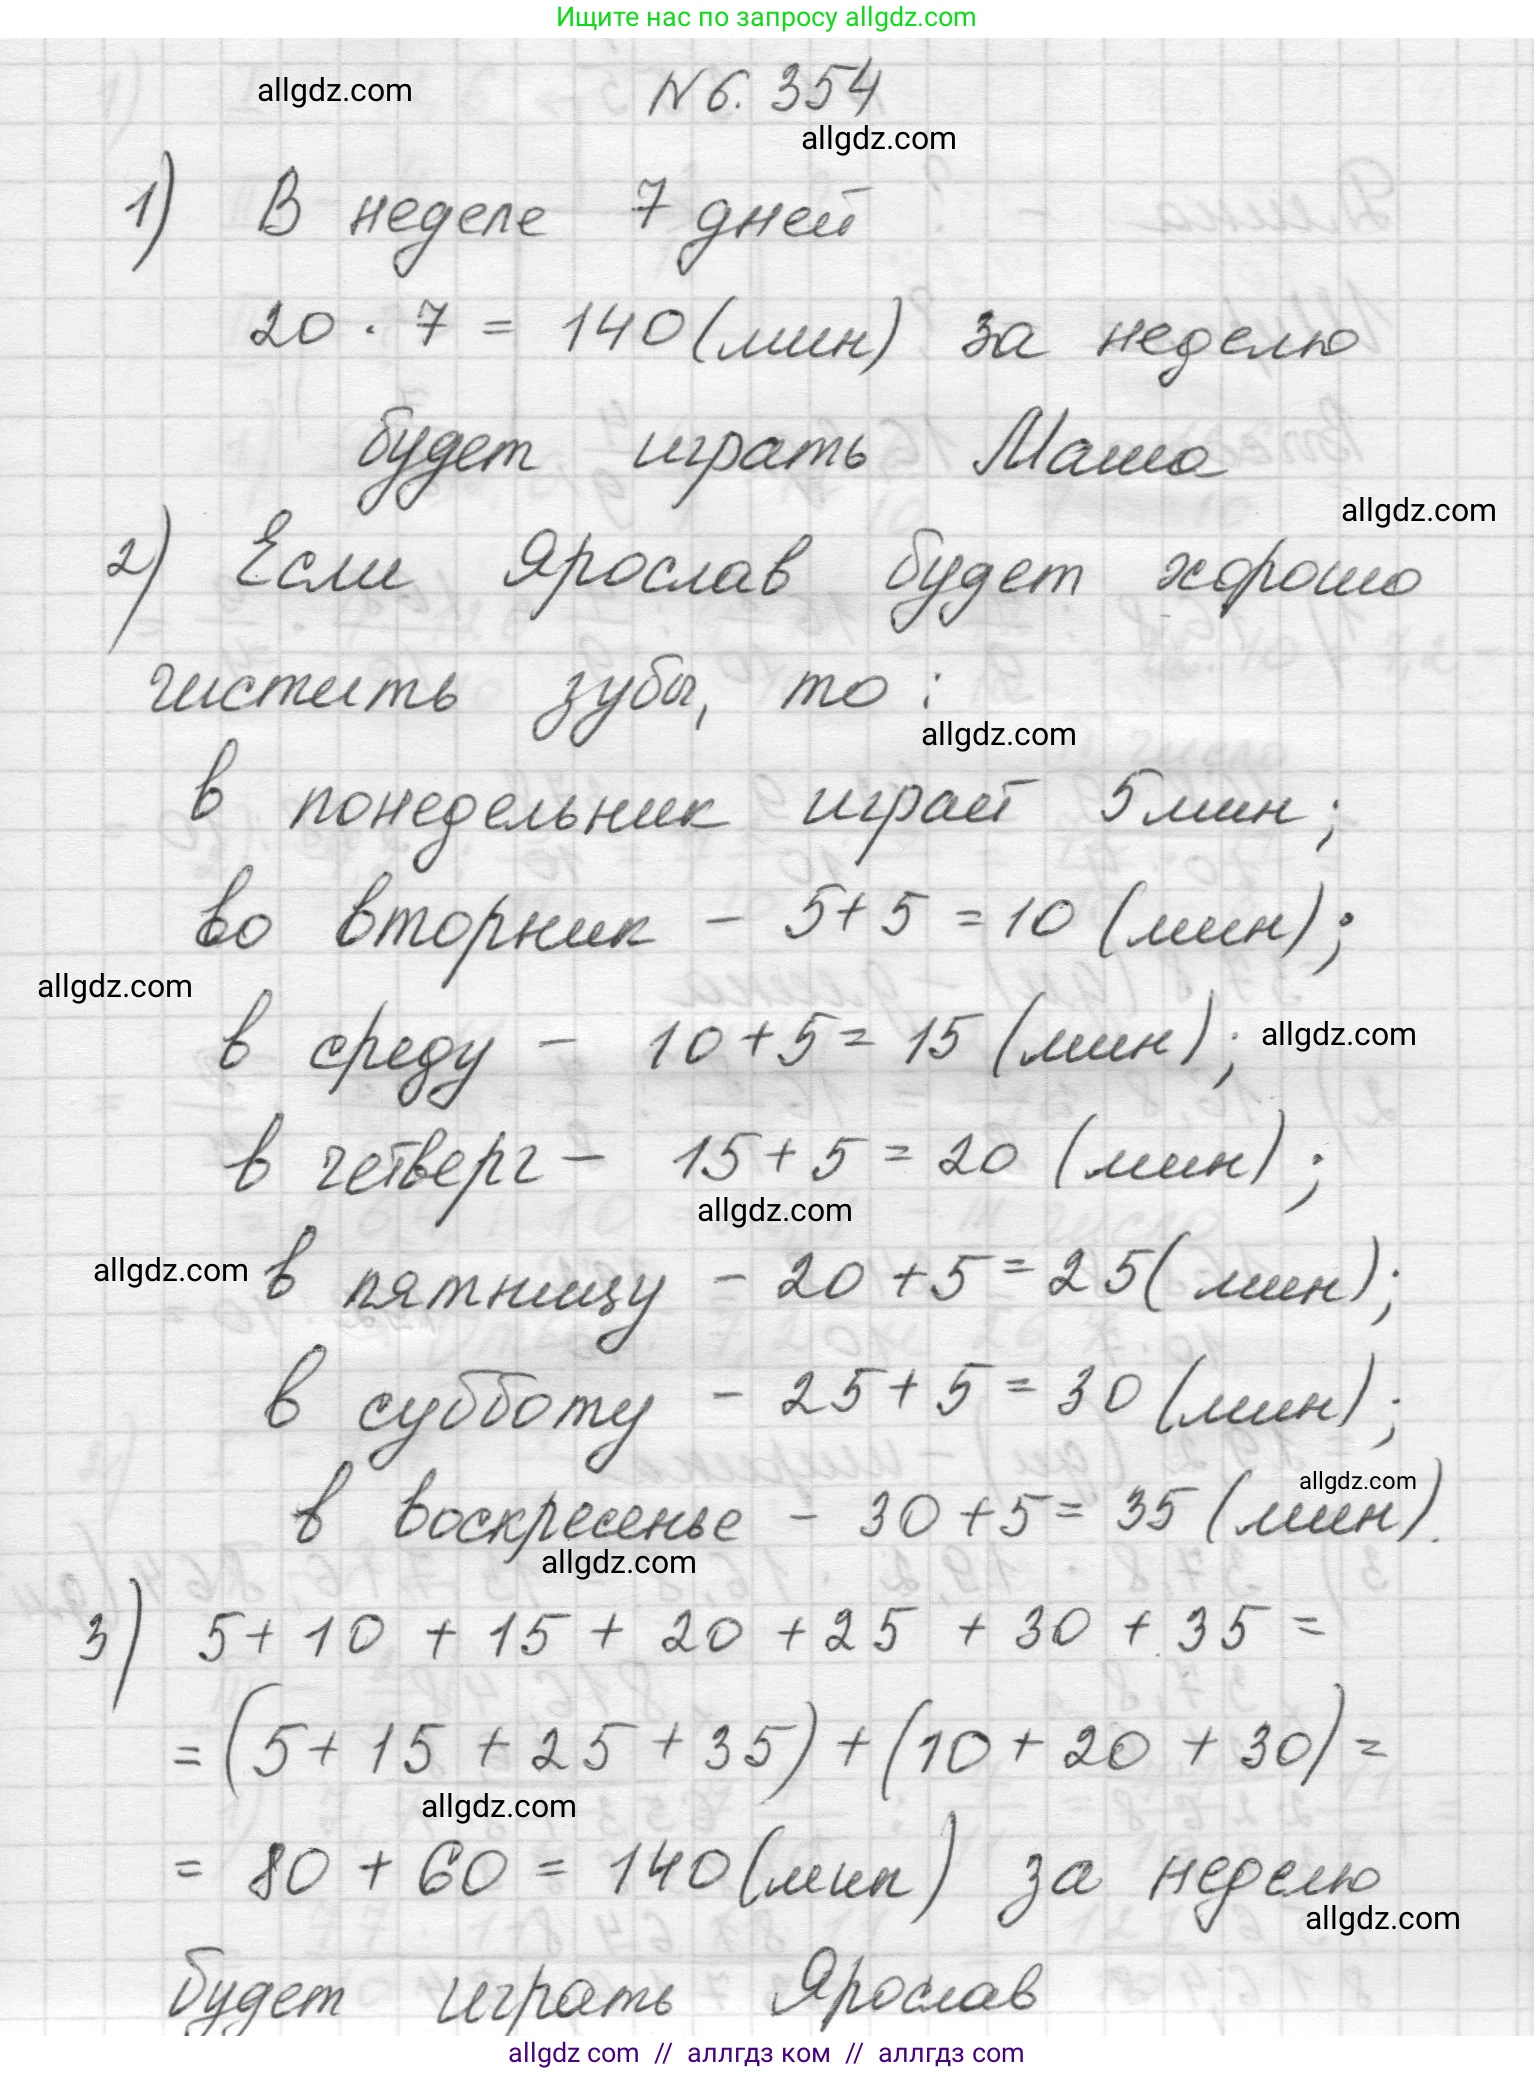 Ищите нас по запросу allgdz.com
allgdz.com
№6.354
allgdz.com
1) В неделе 7 дней
20 · 7 = 140 (мин) за неделю
будет играть Маша
allgdz.com
2) Если Ярослав будет хорошо
чистить зубы, то:
allgdz.com
в понедельник играет 5 мин;
во вторник - 5+5 = 10 (мин);
allgdz.com
в среду - 10+5 = 15 (мин);
allgdz.com
в четверг - 15+5 = 20 (мин);
allgdz.com
allgdz.com
в пятницу - 20+5 = 25 (мин);
в субботу - 25+5 = 30 (мин);
allgdz.com
в воскресенье - 30+5 = 35 (мин).
allgdz.com
3) 5+10 + 15 + 20 + 25 + 30 + 35 =
= (5+15 + 25 + 35) + (10 + 20 + 30) =
allgdz.com
= 80 + 60 = 140 (мин) за неделю
allgdz.com
будет играть Ярослав
allgdz com // аллгдз ком // аллгдз com